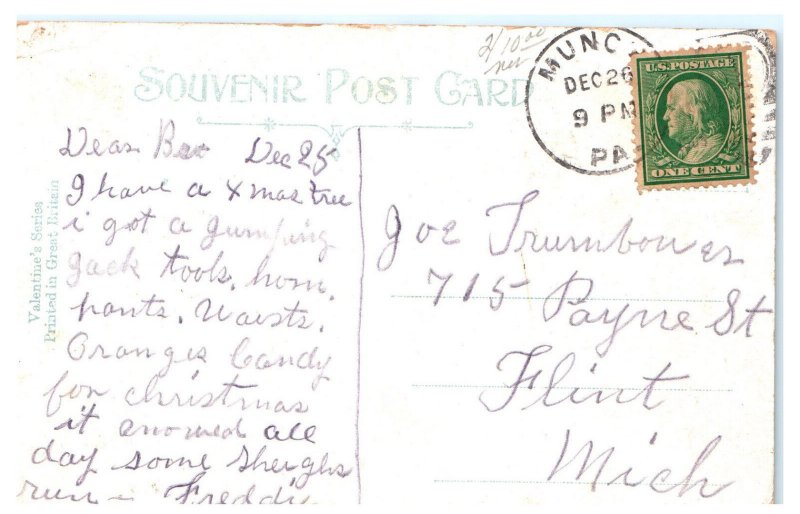 2/10 00
net
SOUVENIR POST CARD
MUNCY
DEC 26
9 PM
PA
U.S. POSTAGE
ONE CENT
Valentine's Series
Printed in Great Britain
Dear Dec 25
I have a Xmas tree
i got a Jumping
Jack tools. horn.
pants. Waists.
Oranges Candy
for christmas
it snowed all
day some sheighs
run - Freddi
Joe Trumbower
715 Payne St
Flint
Mich